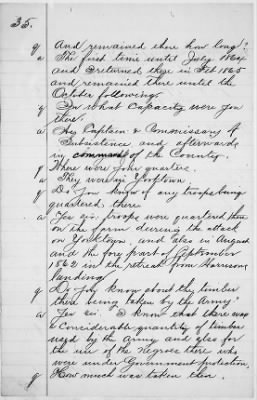 35.
q And remained there how long?
a The first time until July 1864
and I returned there in Feb 1865
and remained there until the
October following
q In what capacity were you
there.
a As Captain & Commissary of
Subsistence and afterwards
in command of the County.
q Where were your quarters.
a They were in Yorktown.
q Do you know of any troops being
quartered there
a Yes sir. troops were quartered there
on the farm during the attack
on Yorktown, and also in August
and the fore part of September
1862 in the retreat from Harrison
Landing
q Do you know about the timber
there being taken by the Army?
a Yes sir. I know that there was
a considerable quantity of timber
used by the army and also for
the use of the Negroes there who
were under Government protection.
q How much was taken then.